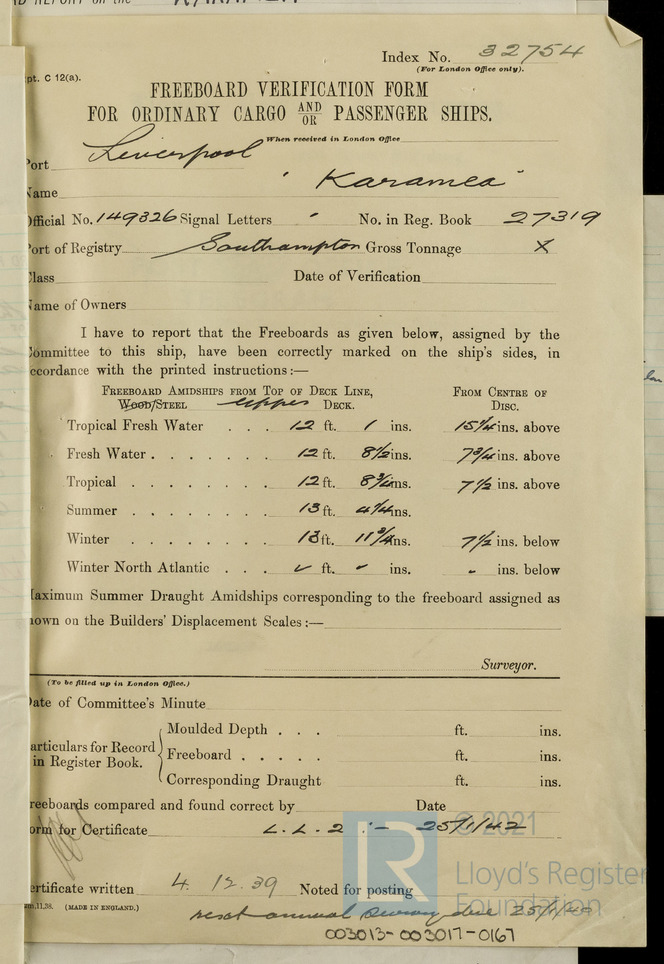 REPORT on the KARAMEA
Index No. 32754
(For London Office only).
pt. C 12(a).
FREEBOARD VERIFICATION FORM
FOR ORDINARY CARGO AND/OR PASSENGER SHIPS.
When received in London Office
Port Liverpool
Name "Karamea"
Official No. 149826 Signal Letters " No. in Reg. Book 27319
Port of Registry Southampton Gross Tonnage X
Class Date of Verification
Name of Owners
I have to report that the Freeboards as given below, assigned by the
Committee to this ship, have been correctly marked on the ship's sides, in
ccordance with the printed instructions:—
FREEBOARD AMIDSHIPS FROM TOP OF DECK LINE, FROM CENTRE OF
WOOD/STEEL upper DECK. DISC.
Tropical Fresh Water . . . 12 ft. 1 ins. 15 1/4 ins. above
Fresh Water . . . . . . . 12 ft. 8 1/2 ins. 7 3/4 ins. above
Tropical . . . . . . . . 12 ft. 8 3/4 ins. 7 1/2 ins. above
Summer . . . . . . . . 13 ft. 4 1/4 ins.
Winter . . . . . . . . 13 ft. 11 3/4 ins. 7 1/2 ins. below
Winter North Atlantic . . . ft. ins. ins. below
aximum Summer Draught Amidships corresponding to the freeboard assigned as
hown on the Builders' Displacement Scales:—
Surveyor.
(To be filled up in London Office.)
Date of Committee's Minute
articulars for Record in Register Book.
Moulded Depth . . . ft. ins.
Freeboard . . . . . ft. ins.
Corresponding Draught ft. ins.
reeboards compared and found correct by Date
orm for Certificate L.L.2 :- 25/1/42
© 2021
Lloyd's Register
Foundation
ertificate written 4.12.39 Noted for posting
m.11.38. (MADE IN ENGLAND.)
next annual survey due 25/1/40
003013-003017-0167